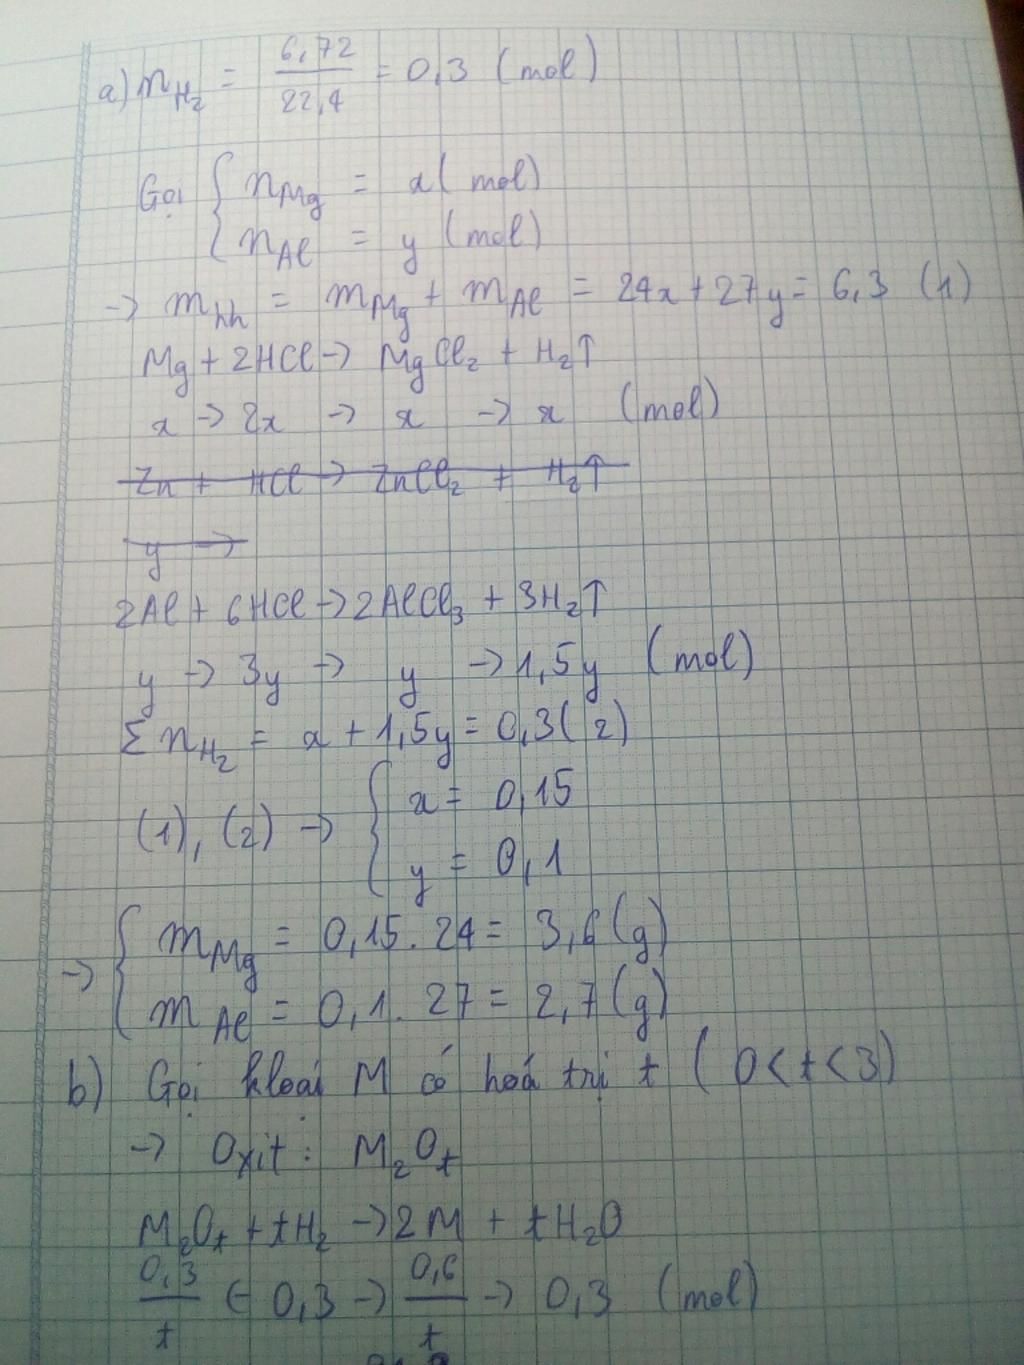 a) nH₂ = 6,72/22,4 = 0,3 (mol)
Gọi { nMg = x (mol)
nAl = y (mol)
-> mhh = mMg + mAl = 24x + 27y = 6,3 (1)
Mg + 2HCl -> MgCl₂ + H₂↑
x -> 2x -> x -> x (mol)
Zn + HCl -> ZnCl₂ + H₂↑
y ->
2Al + 6HCl -> 2AlCl₃ + 3H₂↑
y -> 3y -> y -> 1,5y (mol)
Σ nH₂ = x + 1,5y = 0,3 (2)
(1), (2) -> { x = 0,15
y = 0,1
-> { mMg = 0,15.24 = 3,6 (g)
mAl = 0,1.27 = 2,7 (g)
b) Gọi kloại M có hoá trị t (0<t<3)
-> Oxit: M₂Oₜ
M₂Oₜ + tH₂ -> 2M + tH₂O
0,3/t <- 0,3 -> 0,6/t -> 0,3 (mol)